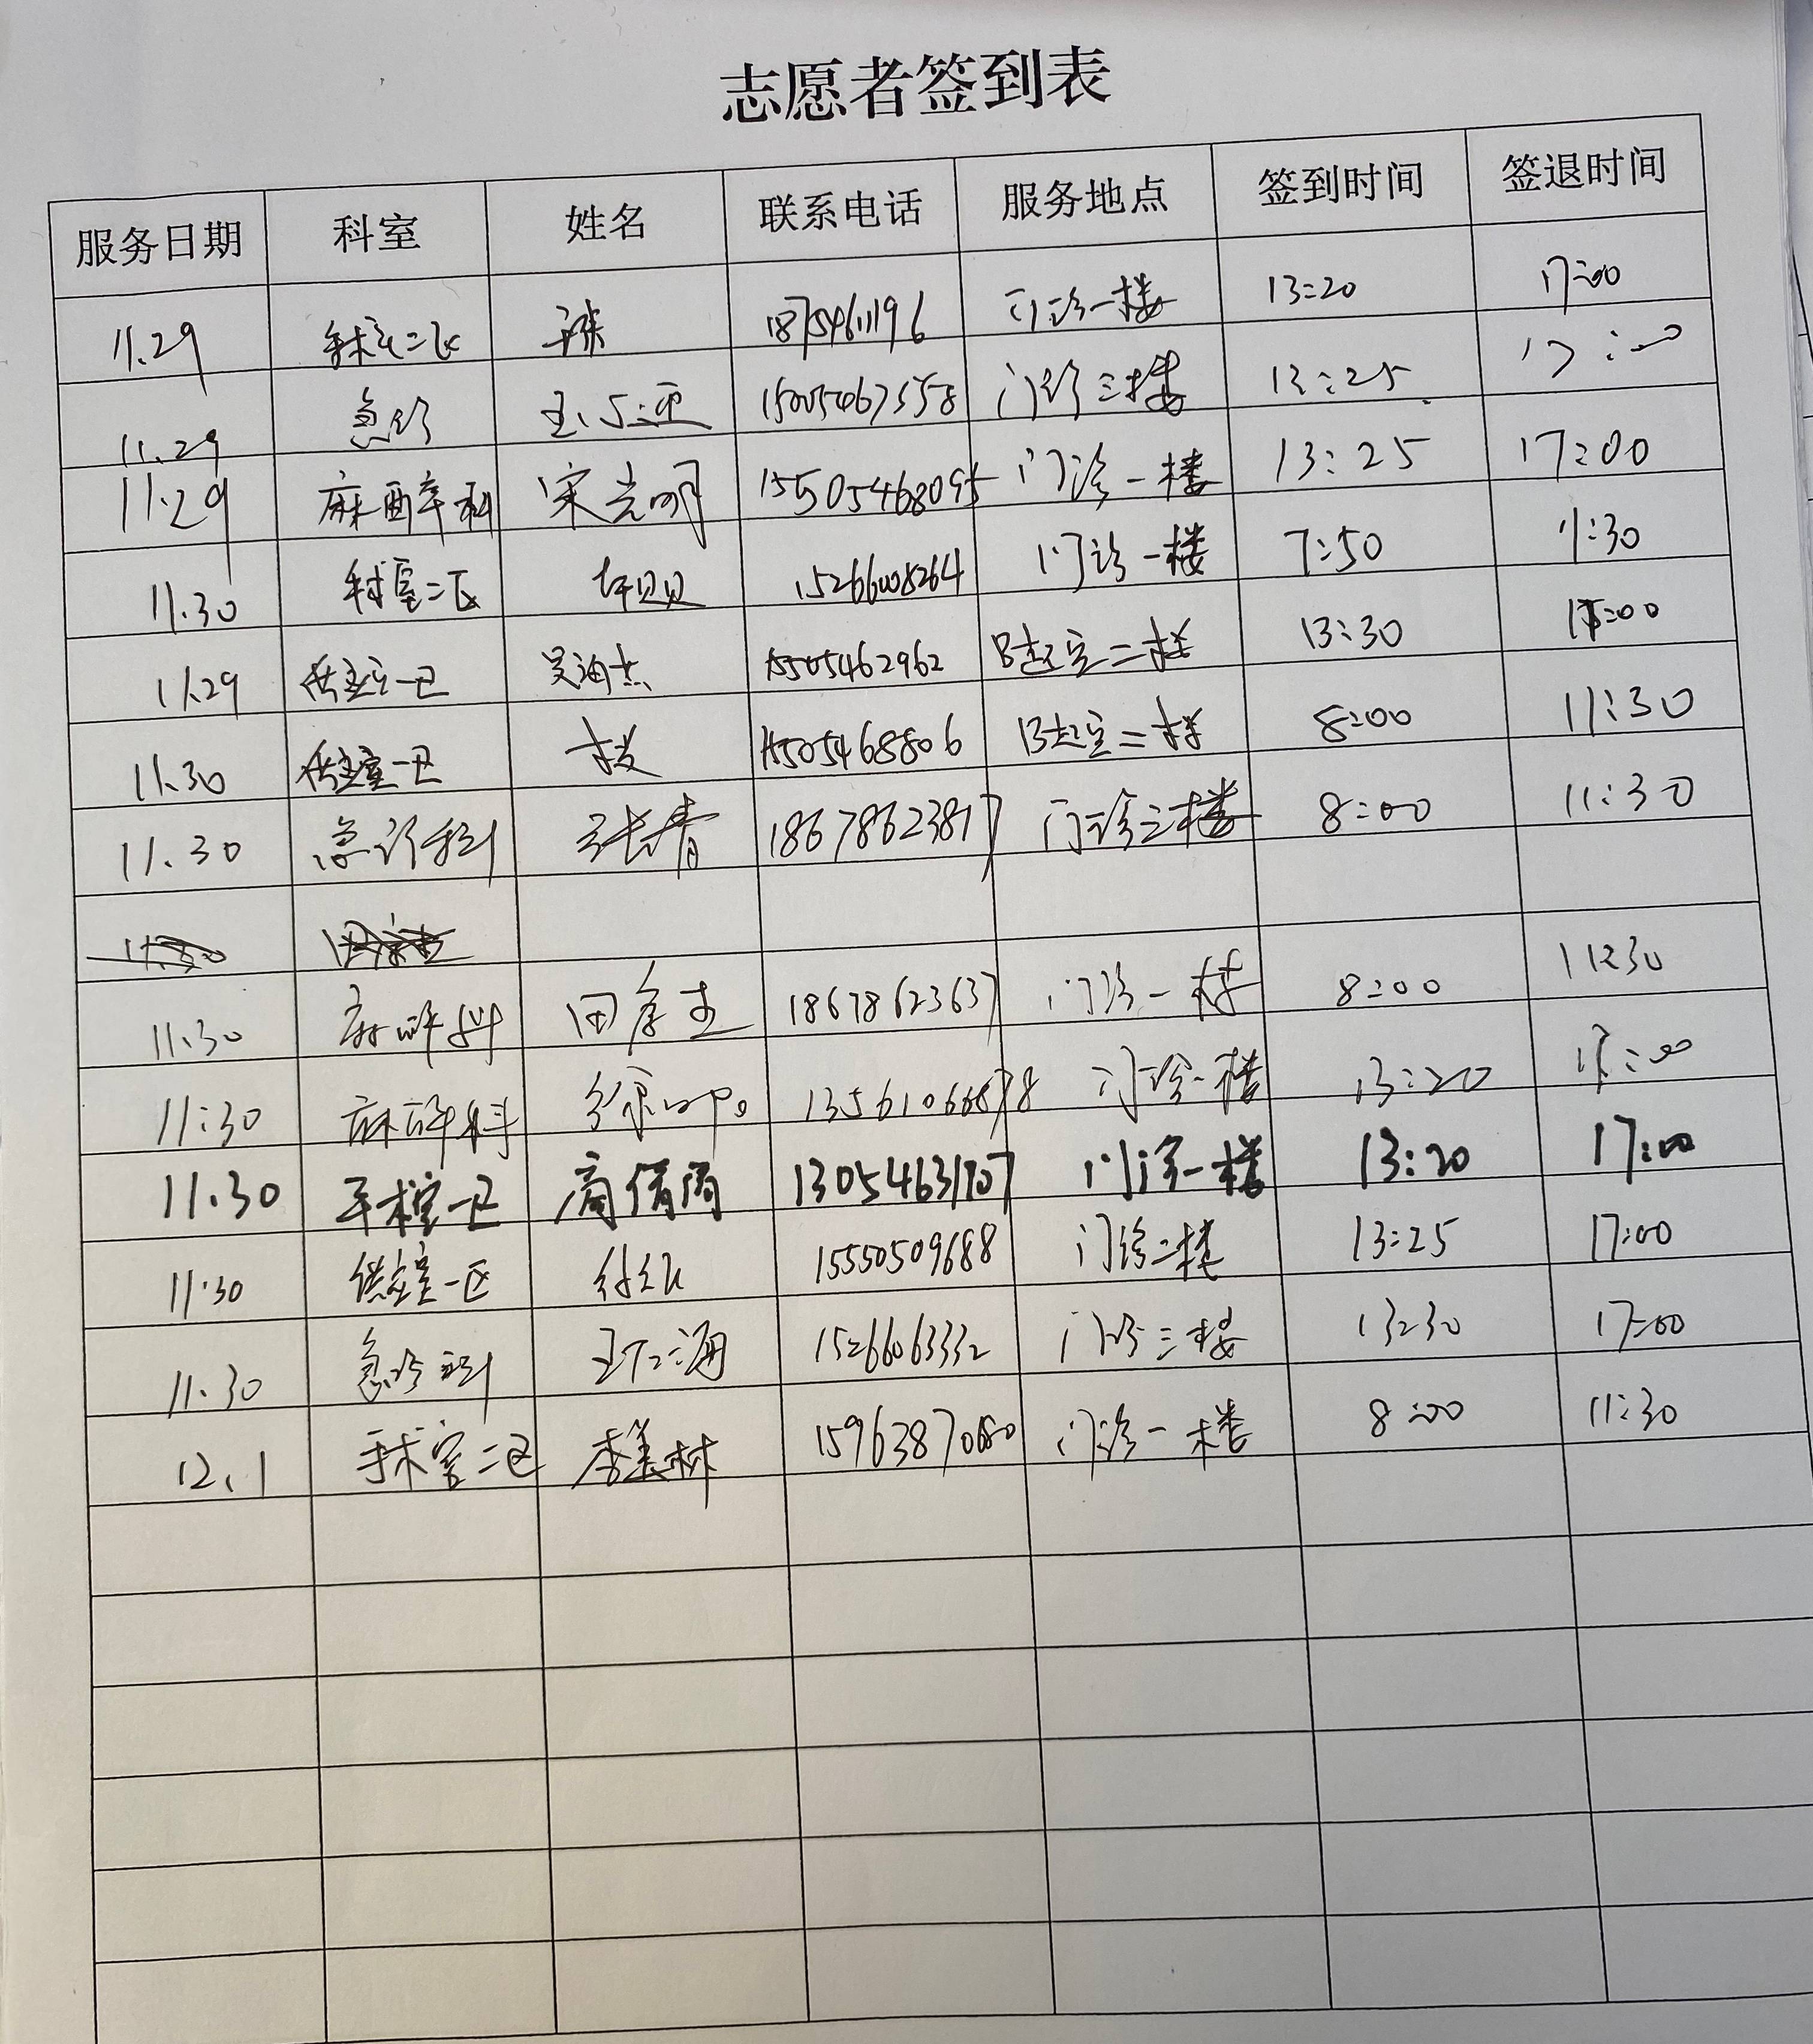 志愿者签到表
服务日期 科室 姓名 联系电话 服务地点 签到时间 签退时间
11.29 手术室二区 18754611196 门诊一楼 13:20 17:00
11.29 急诊 15005467558 门诊三楼 13:25 17:00
11.29 麻醉科 宋光明 15505468095 门诊一楼 13:25 17:00
11.30 手术室二区 贝贝 15266008264 门诊一楼 7:50 11:30
11.29 供应室一区 15505462962 二楼 13:30 17:00
11.30 供应室一区 15505468806 二楼 8:00 11:30
11.30 急诊科 张长青 18678623817 门诊三楼 8:00 11:30
11.30 麻醉科 田 18678623637 门诊一楼 8:00 11:30
11:30 麻醉科 13561066878 门诊一楼 13:20 17:00
11.30 手术室一区 高倩倩 13054631707 门诊一楼 13:20 17:00
11.30 供应室一区 15550509688 门诊二楼 13:25 17:00
11.30 急诊科 海 15266063332 门诊三楼 13:30 17:00
12.1 手术室二区 李美林 15963870680 门诊一楼 8:00 11:30